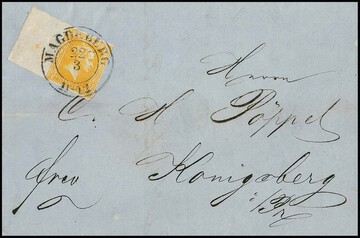 MAGDEBURG
22
3
Herrn
C. H Pöppel
frco Königsberg
i/Pr